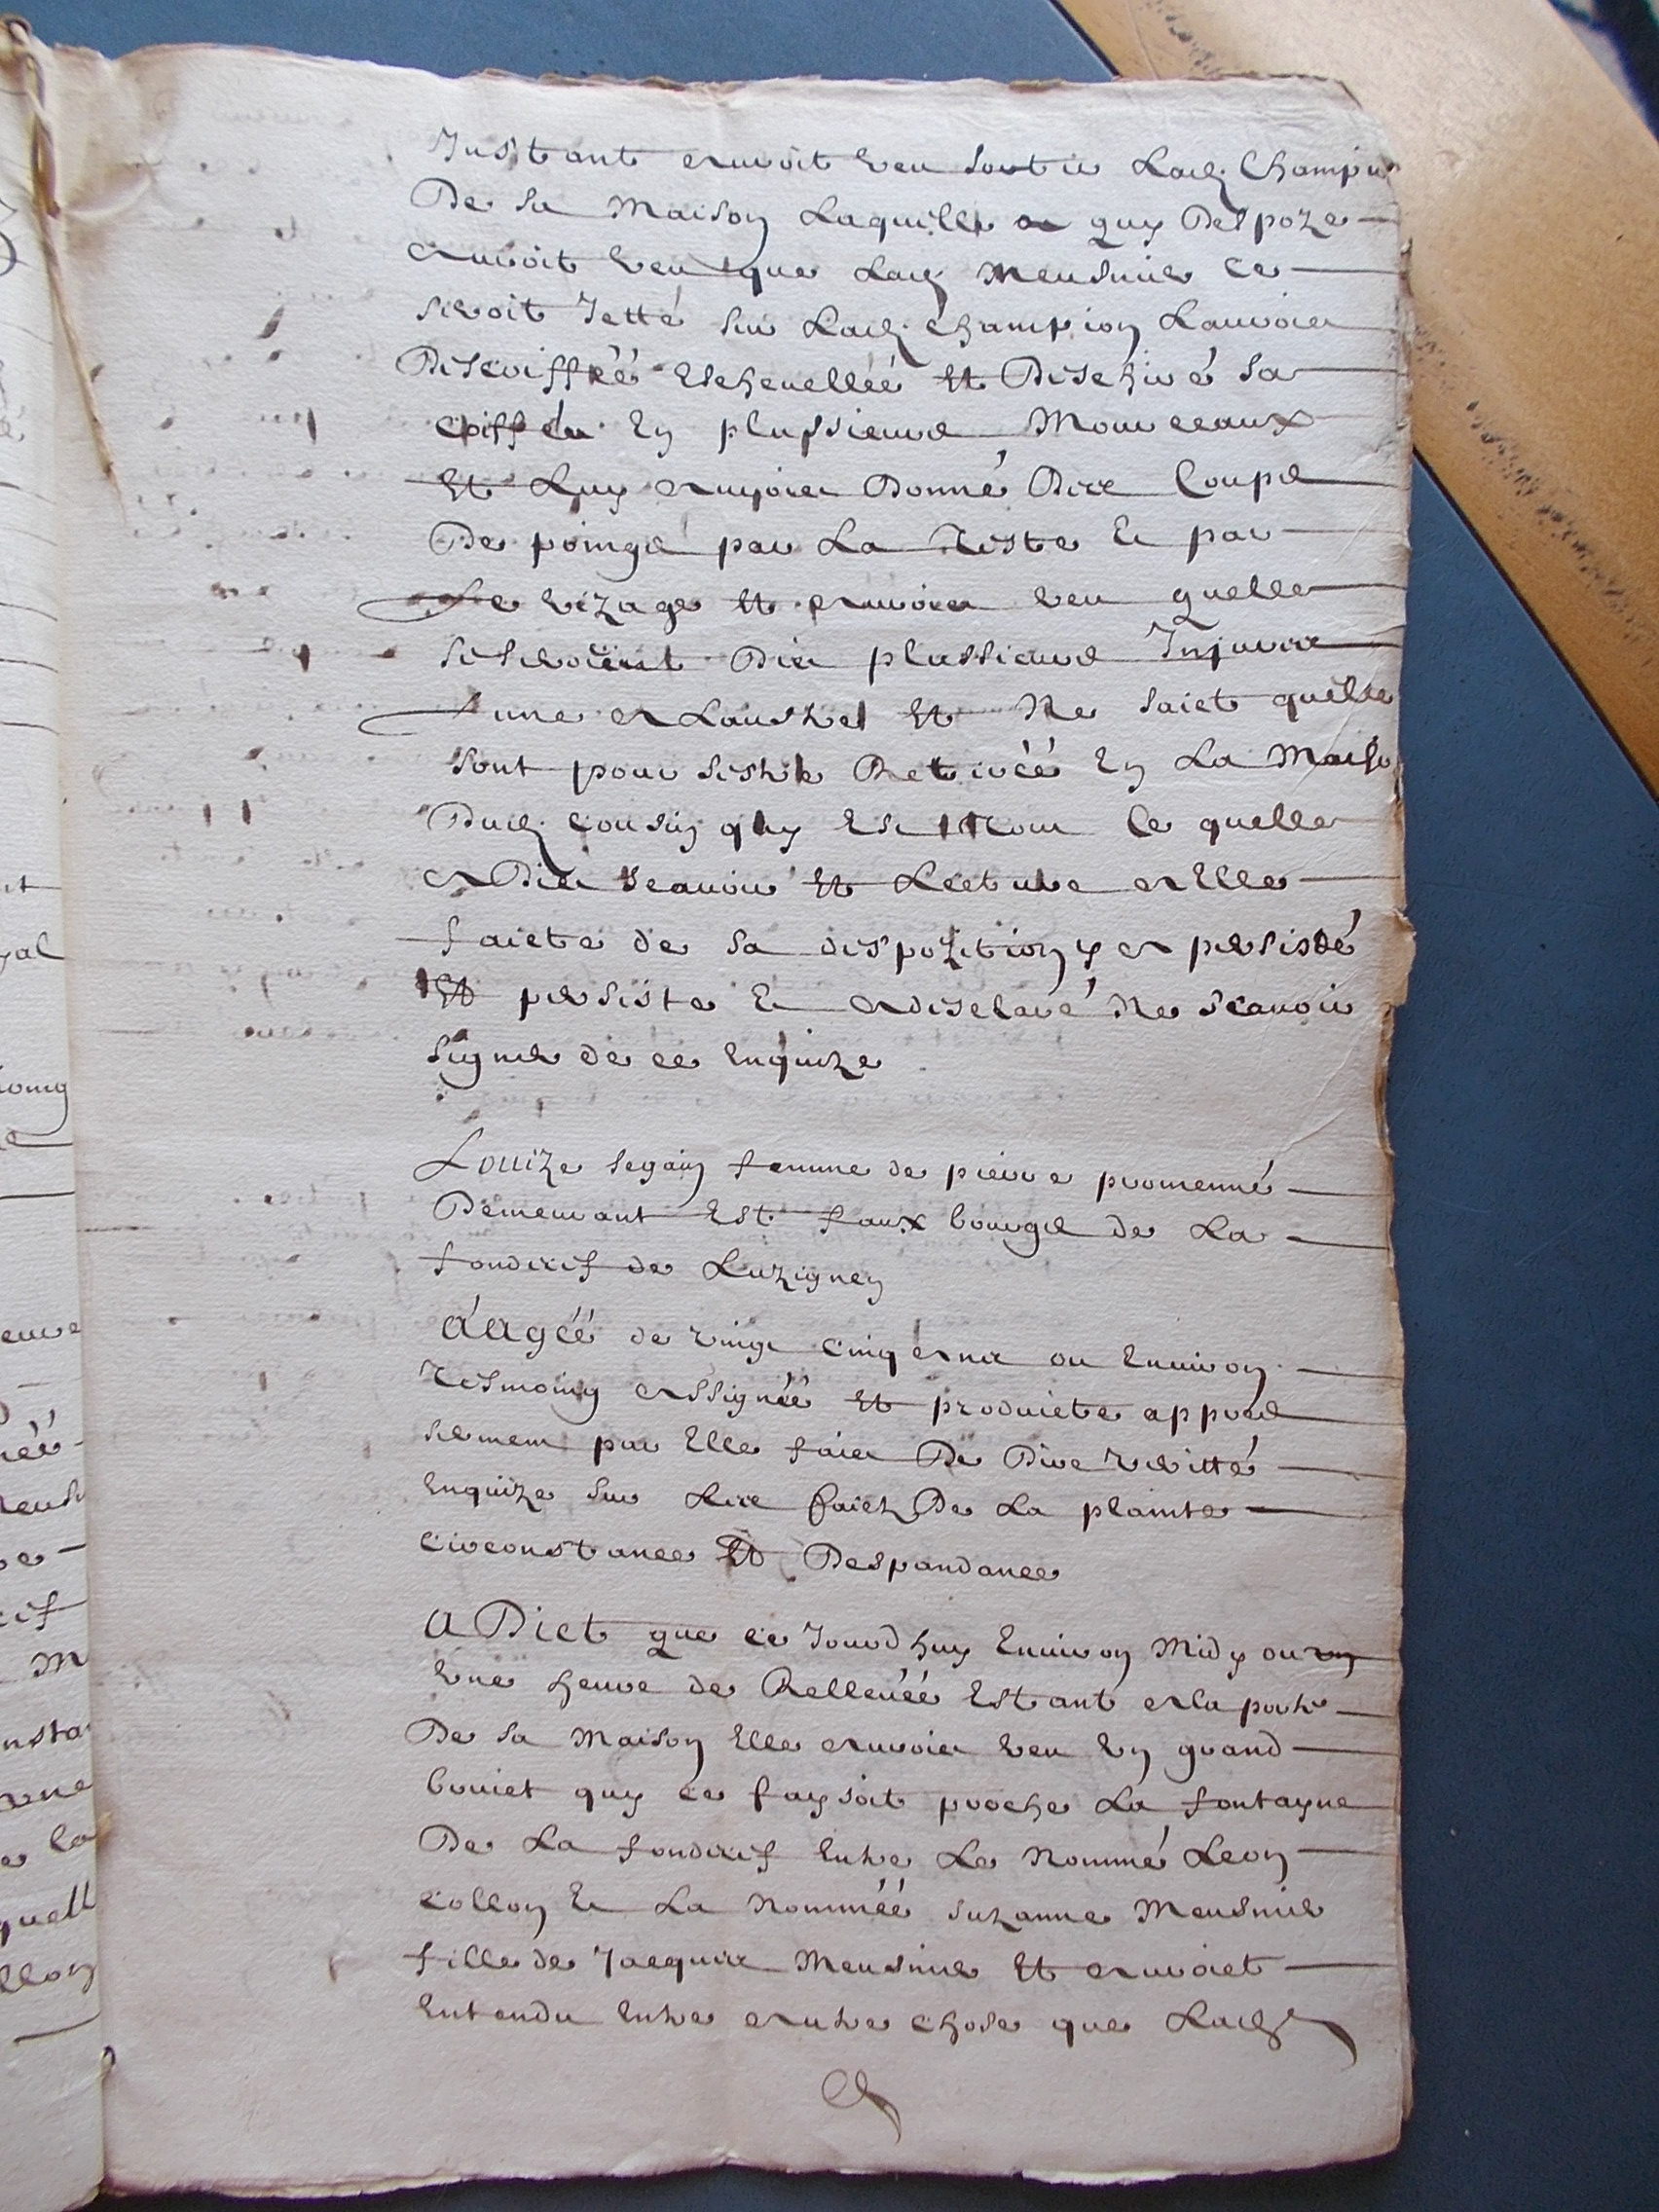 Instant auroit veu sortir lad. Champion
De sa maison laquelle a quy despoze
auroit veu que lad. Meusnier ce
seroit jetté sur lad. Champion lauroit
discoifféé eschevelléé et dischiré sa
coiffeu en plussieurs mourceaux
et luy auroit donné dixe coups
de poingd par la teste et par
le vizage et auroit veu quelle
se seroient dit plussieurs injurre
lune a laustre et ne saict quelle
sont pour sestre retiréé en la maiso
dud. cousin quy est tout ce quelle
a dit scavoir et lecture a elle
faicte de sa dispozition y a persisté
et persiste et a disclaré ne scavoir
signer de ce enquize
Louize segain femme de pierre promenné
demeurant est faux bourgd de la
fondixif de Luzignen
aagéé de vingt cinq anx ou environ
tesmoing assignéé et produicte appred
serment par elle fait de dire veritté
enquize sur lexe faictz de la plainte
circonstance et despandance
a dict que ce jourdhuy environ midy ou
une heure de relleuéé estant a la porte
de sa maison elle auroit veu un grand
bruict quy ce faysoit proche la fontayne
de la fondixif entre le nommé Leon
collon et la nomméé suzanne Meusnier
fille de jacquxe Meusnier et auroict
entendu entre autre chose que lad.